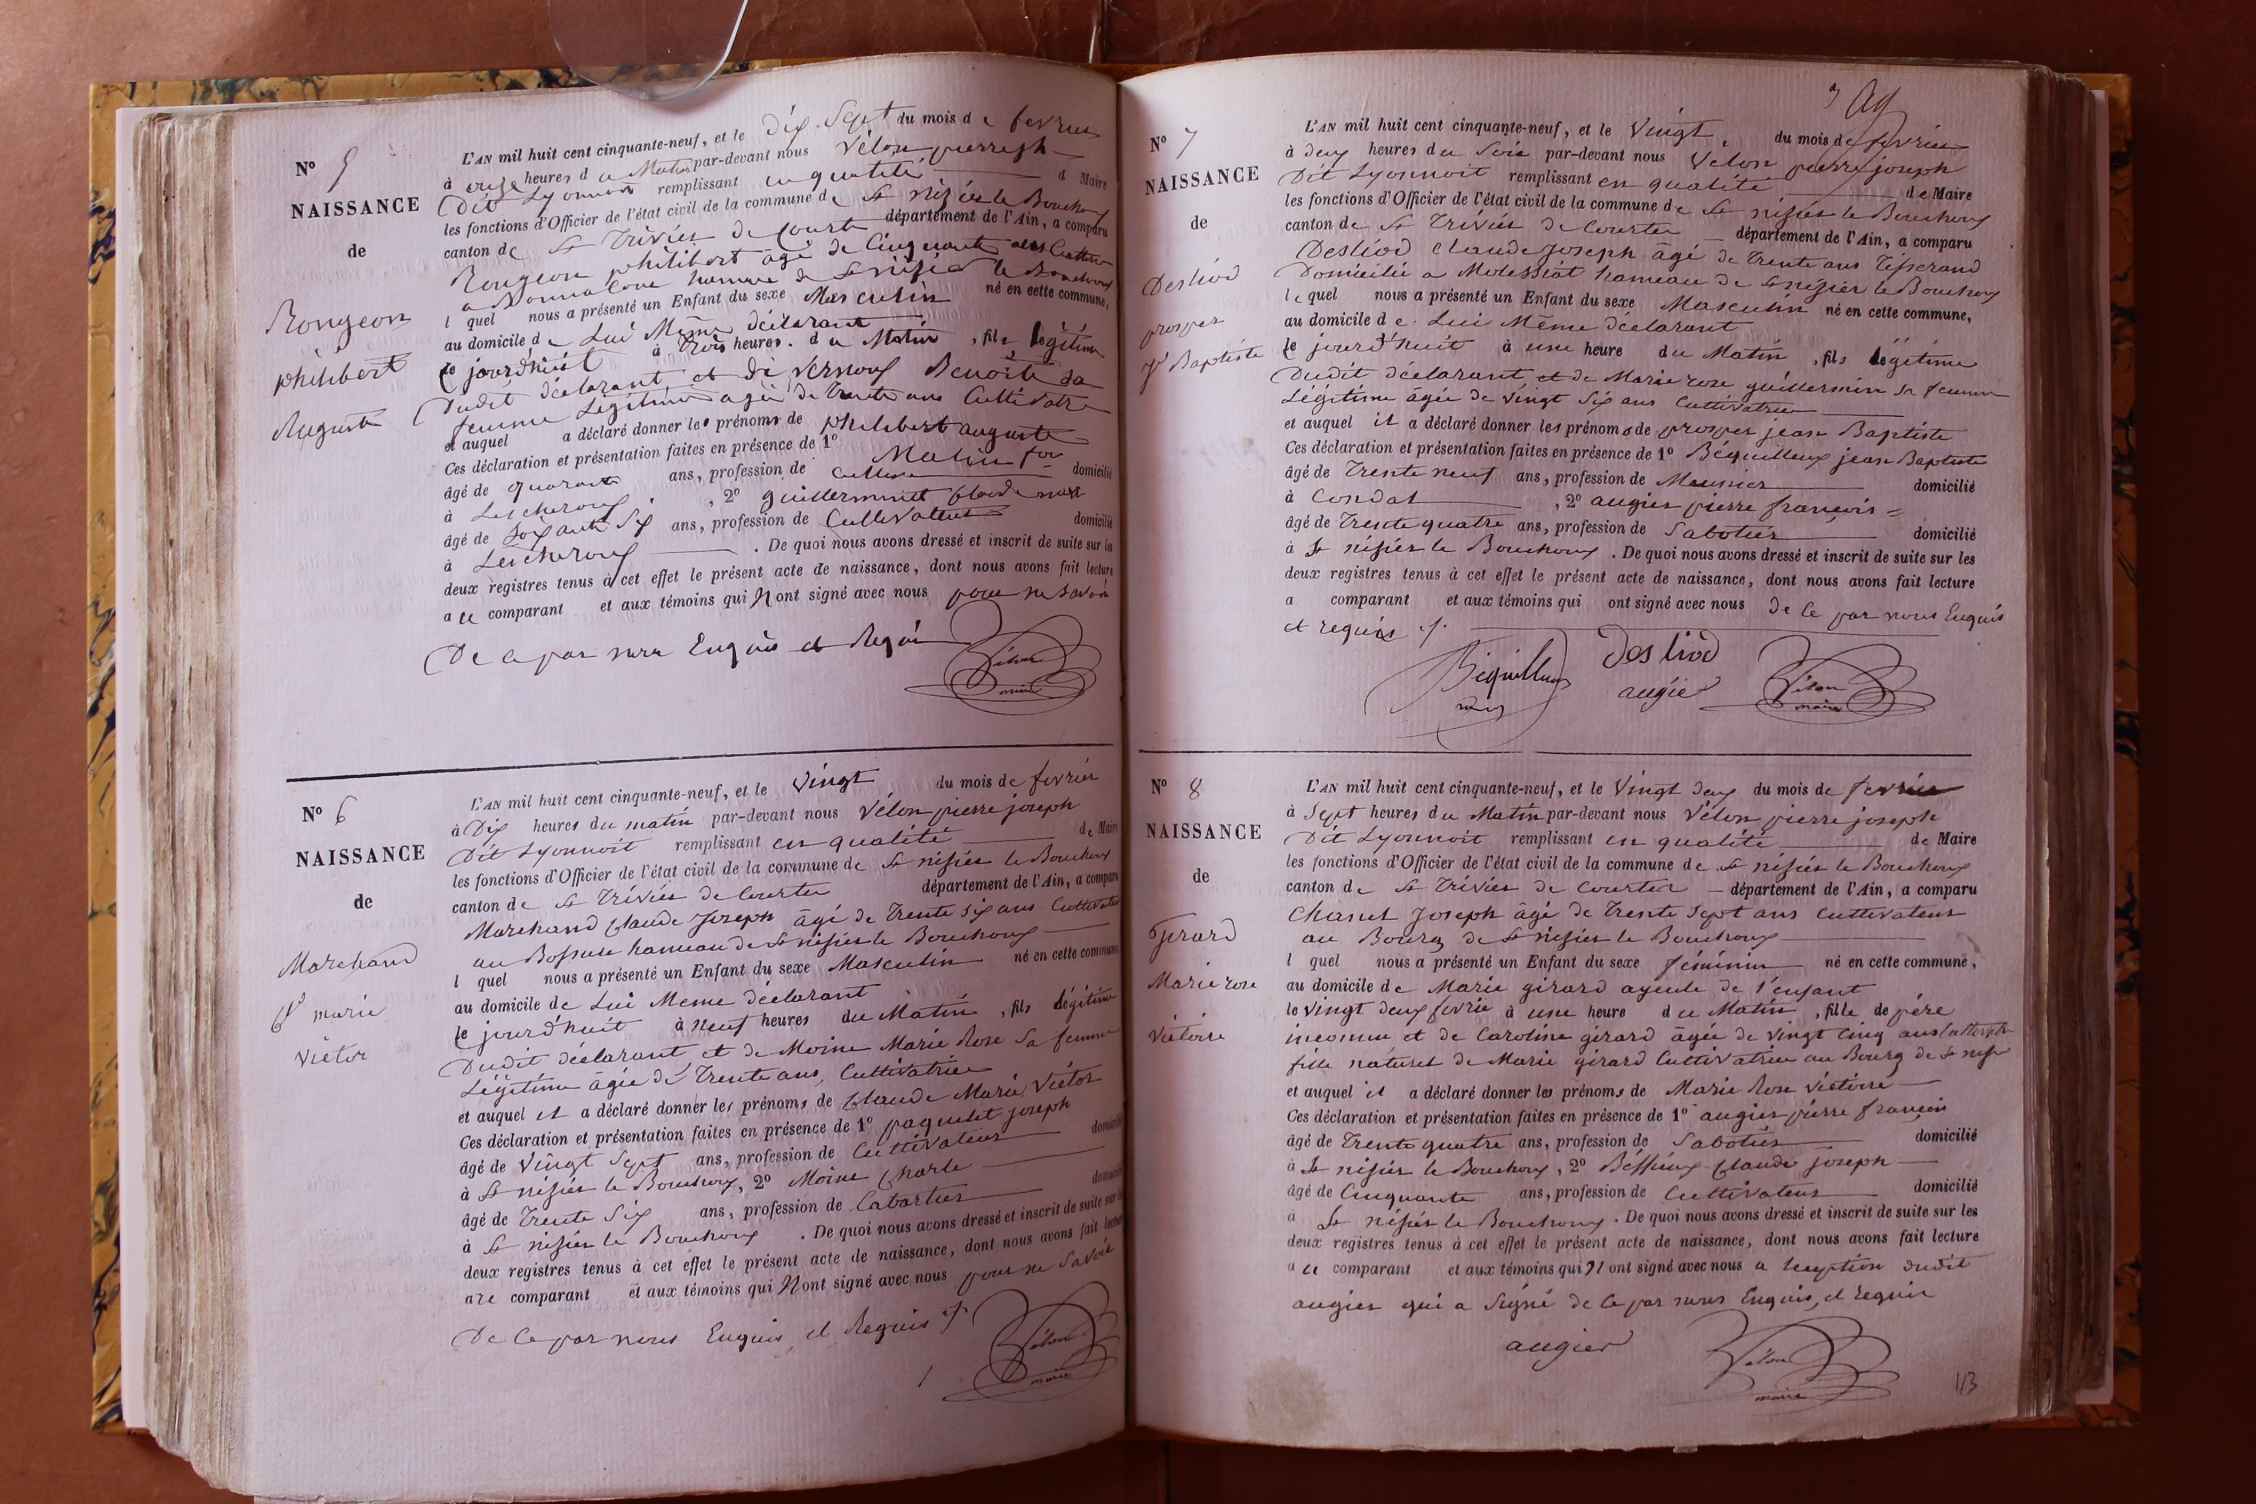 N° 5
NAISSANCE
de
Rongeon
philibert
Auguste
L'AN mil huit cent cinquante-neuf, et le dix Sept du mois de fevrier
à onze heures du Matin par-devant nous Vélon pierre jh
Dit Lyonnois remplissant en qualité de Maire
les fonctions d'Officier de l'état civil de la commune de St nisier le Bouchoux
canton de St Trivier de Courte département de l'Ain, a comparu
Rongeon philibert âgé de Cinquante ans
a hameau de St nisier le Bouchoux
l quel nous a présenté un Enfant du sexe Masculin né en cette commune,
au domicile de Lui Même déclarant
le jourd'huit à trois heures du Matin, fils légitime
Dudit déclarant et de vernoux Benoite sa
femme Légitime agée de trente ans Cultivatre
et auquel a déclaré donner les prénoms de philibert auguste
Ces déclaration et présentation faites en présence de 1° Mati
âgé de quarante ans, profession de domicilié
à Lescheroux, 2° Guillerminet Claude
âgé de Soixante Six ans, profession de Cultivateur domicilié
à Lescheroux. De quoi nous avons dressé et inscrit de suite sur les
deux registres tenus à cet effet le présent acte de naissance, dont nous avons fait lecture
a ce comparant et aux témoins qui N'ont signé avec nous pour ne savoir
De ce par nous Enquis et Requis
Vélon
maire
N° 6
NAISSANCE
de
Marchand
Cl marie
Victor
L'AN mil huit cent cinquante-neuf, et le Vingt du mois de fevrier
à Dix heures du matin par-devant nous Vélon pierre joseph
Dit Lyonnoit remplissant en qualité de Maire
les fonctions d'Officier de l'état civil de la commune de St nisier le Bouchoux
canton de St Trivier de Courte département de l'Ain, a comparu
Marchand Claude Joseph âgé de Trente six ans Cultivateur
au hameau de St nisier le Bouchoux
l quel nous a présenté un Enfant du sexe Masculin né en cette commune
au domicile de Lui Meme déclarant
le jourd'huit à neuf heures du Matin, fils légitime
Dudit déclarant et de Moine Marie Rose Sa femme
Légitime âgée de Trente ans, Cultivatrice
et auquel il a déclaré donner les prénoms de Claude Marie Victor
Ces déclaration et présentation faites en présence de 1° paquelet joseph
âgé de Vingt Sept ans, profession de Cultivateur domicilié
à St nisier le Bouchoux, 2° Moine Charle
âgé de Trente Six ans, profession de Cabartier domicilié
à St nisier le Bouchoux. De quoi nous avons dressé et inscrit de suite sur les
deux registres tenus à cet effet le présent acte de naissance, dont nous avons fait lecture
a ce comparant et aux témoins qui N'ont signé avec nous pour ne Savoir
De Ce par nous Enquis et Requis
Vélon
maire
N° 7
NAISSANCE
de
Desliod
prosper
Jn Baptiste
L'AN mil huit cent cinquante-neuf, et le Vingt du mois de fevrier
à deux heures du Soir par-devant nous Vélon pierre joseph
Dit Lyonnoit remplissant en qualité de Maire
les fonctions d'Officier de l'état civil de la commune de St nisier le Bouchoux
canton de St Trivier de Courte département de l'Ain, a comparu
Desliod Claude Joseph âgé de Trente ans Tisserand
Domicilié a Molissiat hameau de St nisier le Bouchoux
lequel nous a présenté un Enfant du sexe Masculin né en cette commune,
au domicile de Lui Même déclarant
le jourd'huit à une heure du Matin, fils légitime
Dudit déclarant et de Marie rose guillermin sa femme
Légitime âgée de vingt Six ans Cultivatrice
et auquel il a déclaré donner les prénoms de prosper jean Baptiste
Ces déclaration et présentation faites en présence de 1° Béquilleux jean Baptiste
âgé de Trente neuf ans, profession de Meunier domicilié
à Condal, 2° augier pierre françois
âgé de Trente quatre ans, profession de Sabotier domicilié
à St nisier le Bouchoux. De quoi nous avons dressé et inscrit de suite sur les
deux registres tenus à cet effet le présent acte de naissance, dont nous avons fait lecture
a comparant et aux témoins qui ont signé avec nous de Ce par nous Enquis
et requis
Béquilleux
Desliod
augier
Vélon
maire
N° 8
NAISSANCE
de
Girard
Marie rose
Victoire
L'AN mil huit cent cinquante-neuf, et le Vingt deux du mois de fevrier
à Sept heures du Matin par-devant nous Vélon pierre joseph
Dit Lyonnoit remplissant en qualité de Maire
les fonctions d'Officier de l'état civil de la commune de St nisier le Bouchoux
canton de St Trivier de Courte département de l'Ain, a comparu
Chanel Joseph âgé de Trente Sept ans Cultivateur
au Bourg de St nisier le Bouchoux
l quel nous a présenté un Enfant du sexe féminin né en cette commune,
au domicile de Marie girard ayeule de l'enfant
le vingt deux fevrie à une heure du Matin, fille de pére
inconnu et de Caroline girard âgée de vingt Cinq ans Cultivatr
fille naturel de Marie girard Cultivatrice au Bourg de St nisr
et auquel il a déclaré donner les prénoms de Marie Rose Victoire
Ces déclaration et présentation faites en présence de 1° augier pierre françois
âgé de Trente quatre ans, profession de Sabotier domicilié
à St nisier le Bouchoux, 2° Claude joseph
âgé de Cinquante ans, profession de Cultivateur domicilié
à St nisier le Bouchoux. De quoi nous avons dressé et inscrit de suite sur les
deux registres tenus à cet effet le présent acte de naissance, dont nous avons fait lecture
a ce comparant et aux témoins qui N'ont signé avec nous a lexeption dudit
augier qui a Signé de Ce par nous Enquis et requis
augier
Vélon
maire
113